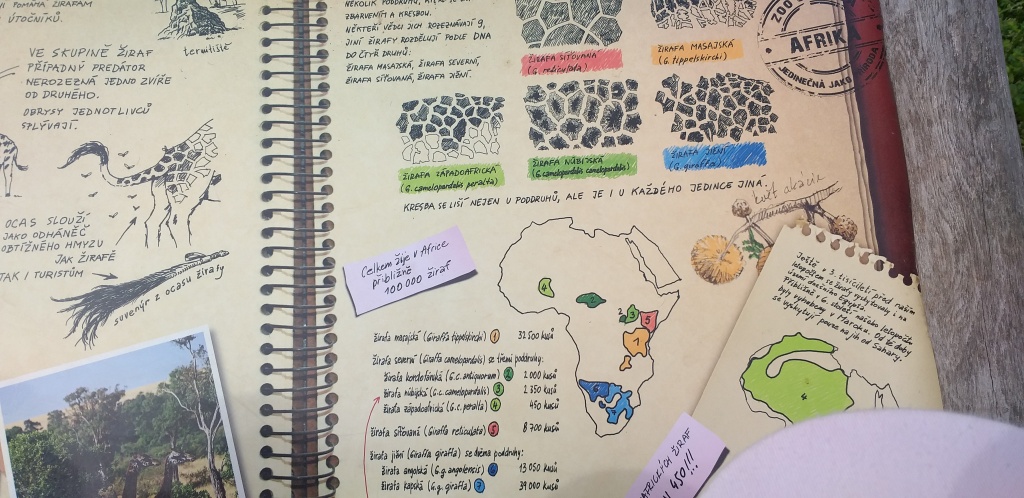 POMÁHÁ ŽIRAFÁM
ÚTOČNÍKŮ.
termitiště
VE SKUPINĚ ŽIRAF
PŘÍPADNÝ PREDÁTOR
NEROZEZNÁ JEDNO ZVÍŘE
OD DRUHÉHO.
OBRYSY JEDNOTLIVCŮ
SPLÝVAJÍ.
OCAS SLOUŽÍ
JAKO ODHÁNĚČ
OBTÍŽNÉHO HMYZU
JAK ŽIRAFĚ
TAK I TURISTŮM
suvenýr z ocasu žirafy
ZBARVENÍM A KRESBOU.
NĚKTEŘÍ VĚDCI JICH ROZEZNÁVAJÍ 9,
JINÍ ŽIRAFY ROZDĚLUJÍ PODLE DNA
DO ČTYŘ DRUHŮ:
ŽIRAFA MASAJSKÁ, ŽIRAFA SEVERNÍ,
ŽIRAFA SÍŤOVANÁ, ŽIRAFA JIŽNÍ.
ŽIRAFA SÍŤOVANÁ
(G. reticulata)
ŽIRAFA MASAJSKÁ
(G. tippelskirchi)
ZOO
AFRIKA
JEDINEČNÁ JAKO
ŽIRAFA ZÁPADOAFRICKÁ
(G. camelopardalis peralta)
ŽIRAFA NÚBIJSKÁ
(G. camelopardalis camelopardalis)
ŽIRAFA JIŽNÍ
(G. giraffa)
KRESBA SE LIŠÍ NEJEN U PODDRUHŮ, ALE JE I U KAŽDÉHO JEDINCE JINÁ.
květ akácie
Celkem žije v Africe
přibližně
100 000 žiraf
4
2
2
3
5
1
6
7
žirafa masajská (Giraffa tippelskirchi) 1 32 500 kusů
žirafa severní (Giraffa camelopardalis) se třemi poddruhy:
žirafa kordofánská (G.c. antiquorum) 2 2 000 kusů
žirafa núbijská (G.c. camelopardalis) 3 2 350 kusů
žirafa západoafrická (G.c. peralta) 4 450 kusů
žirafa síťovaná (Giraffa reticulata) 5 8 700 kusů
žirafa jižní (Giraffa giraffa) se dvěma poddruhy:
žirafa angolská (G.g. angolensis) 6 13 050 kusů
žirafa kapská (G.g. giraffa) 7 39 000 kusů
Ještě v 3. tisíciletí před naším
letopočtem se žirafy vyskytovaly i na
území dnešního Egypta.
Přibližně v 6. století našeho letopočtu
byly vyhubeny v Maroku. Od té doby
se vyskytují pouze na jih od Sahary.
AFRICKÝCH ŽIRAF
450!!!